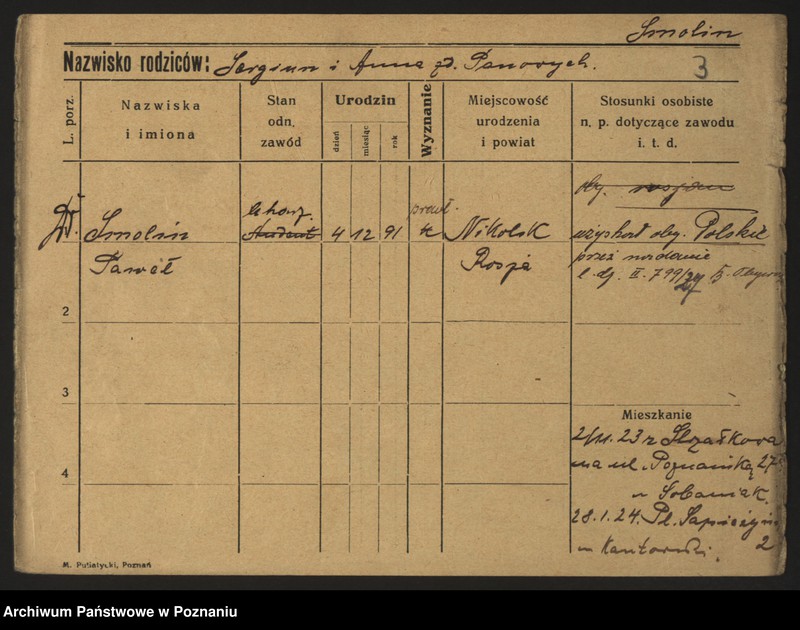 Smolin
Nazwisko rodziców: Sergiusz i Anna zd. Panowych. 3
L. porz.
Nazwiska
i imiona
Stan
odn.
zawód
Urodzin
dzień
miesiąc
rok
Wyznanie
Miejscowość
urodzenia
i powiat
Stosunki osobiste
n. p. dotyczące zawodu
i. t. d.
oby. rosjan
Dr. Smolin
Paweł
lekarz.
student
4 12 91
prawł.
k
Nikolsk
Rosja
uzyskał oby. Polskie
przez nadanie
l. dz. II. 799/27
2
3
4
Mieszkanie
2/11. 23 z Strzałkowa
na ul. Poznańską 27
u Sobaniak.
28.1.24. Pl. Sapieżyń
2
u Kantorski.
M. Putiatycki, Poznań
Archiwum Państwowe w Poznaniu